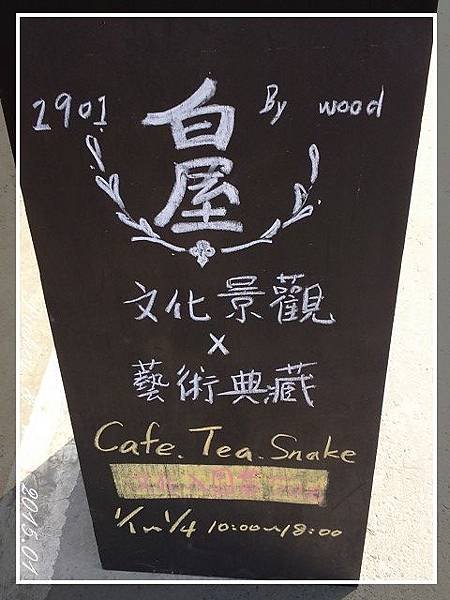 1901 白屋 By wood
文化景觀
x
藝術典藏
Cafe. Tea. Snake
1/1~1/4 10:00~18:00
2015.01